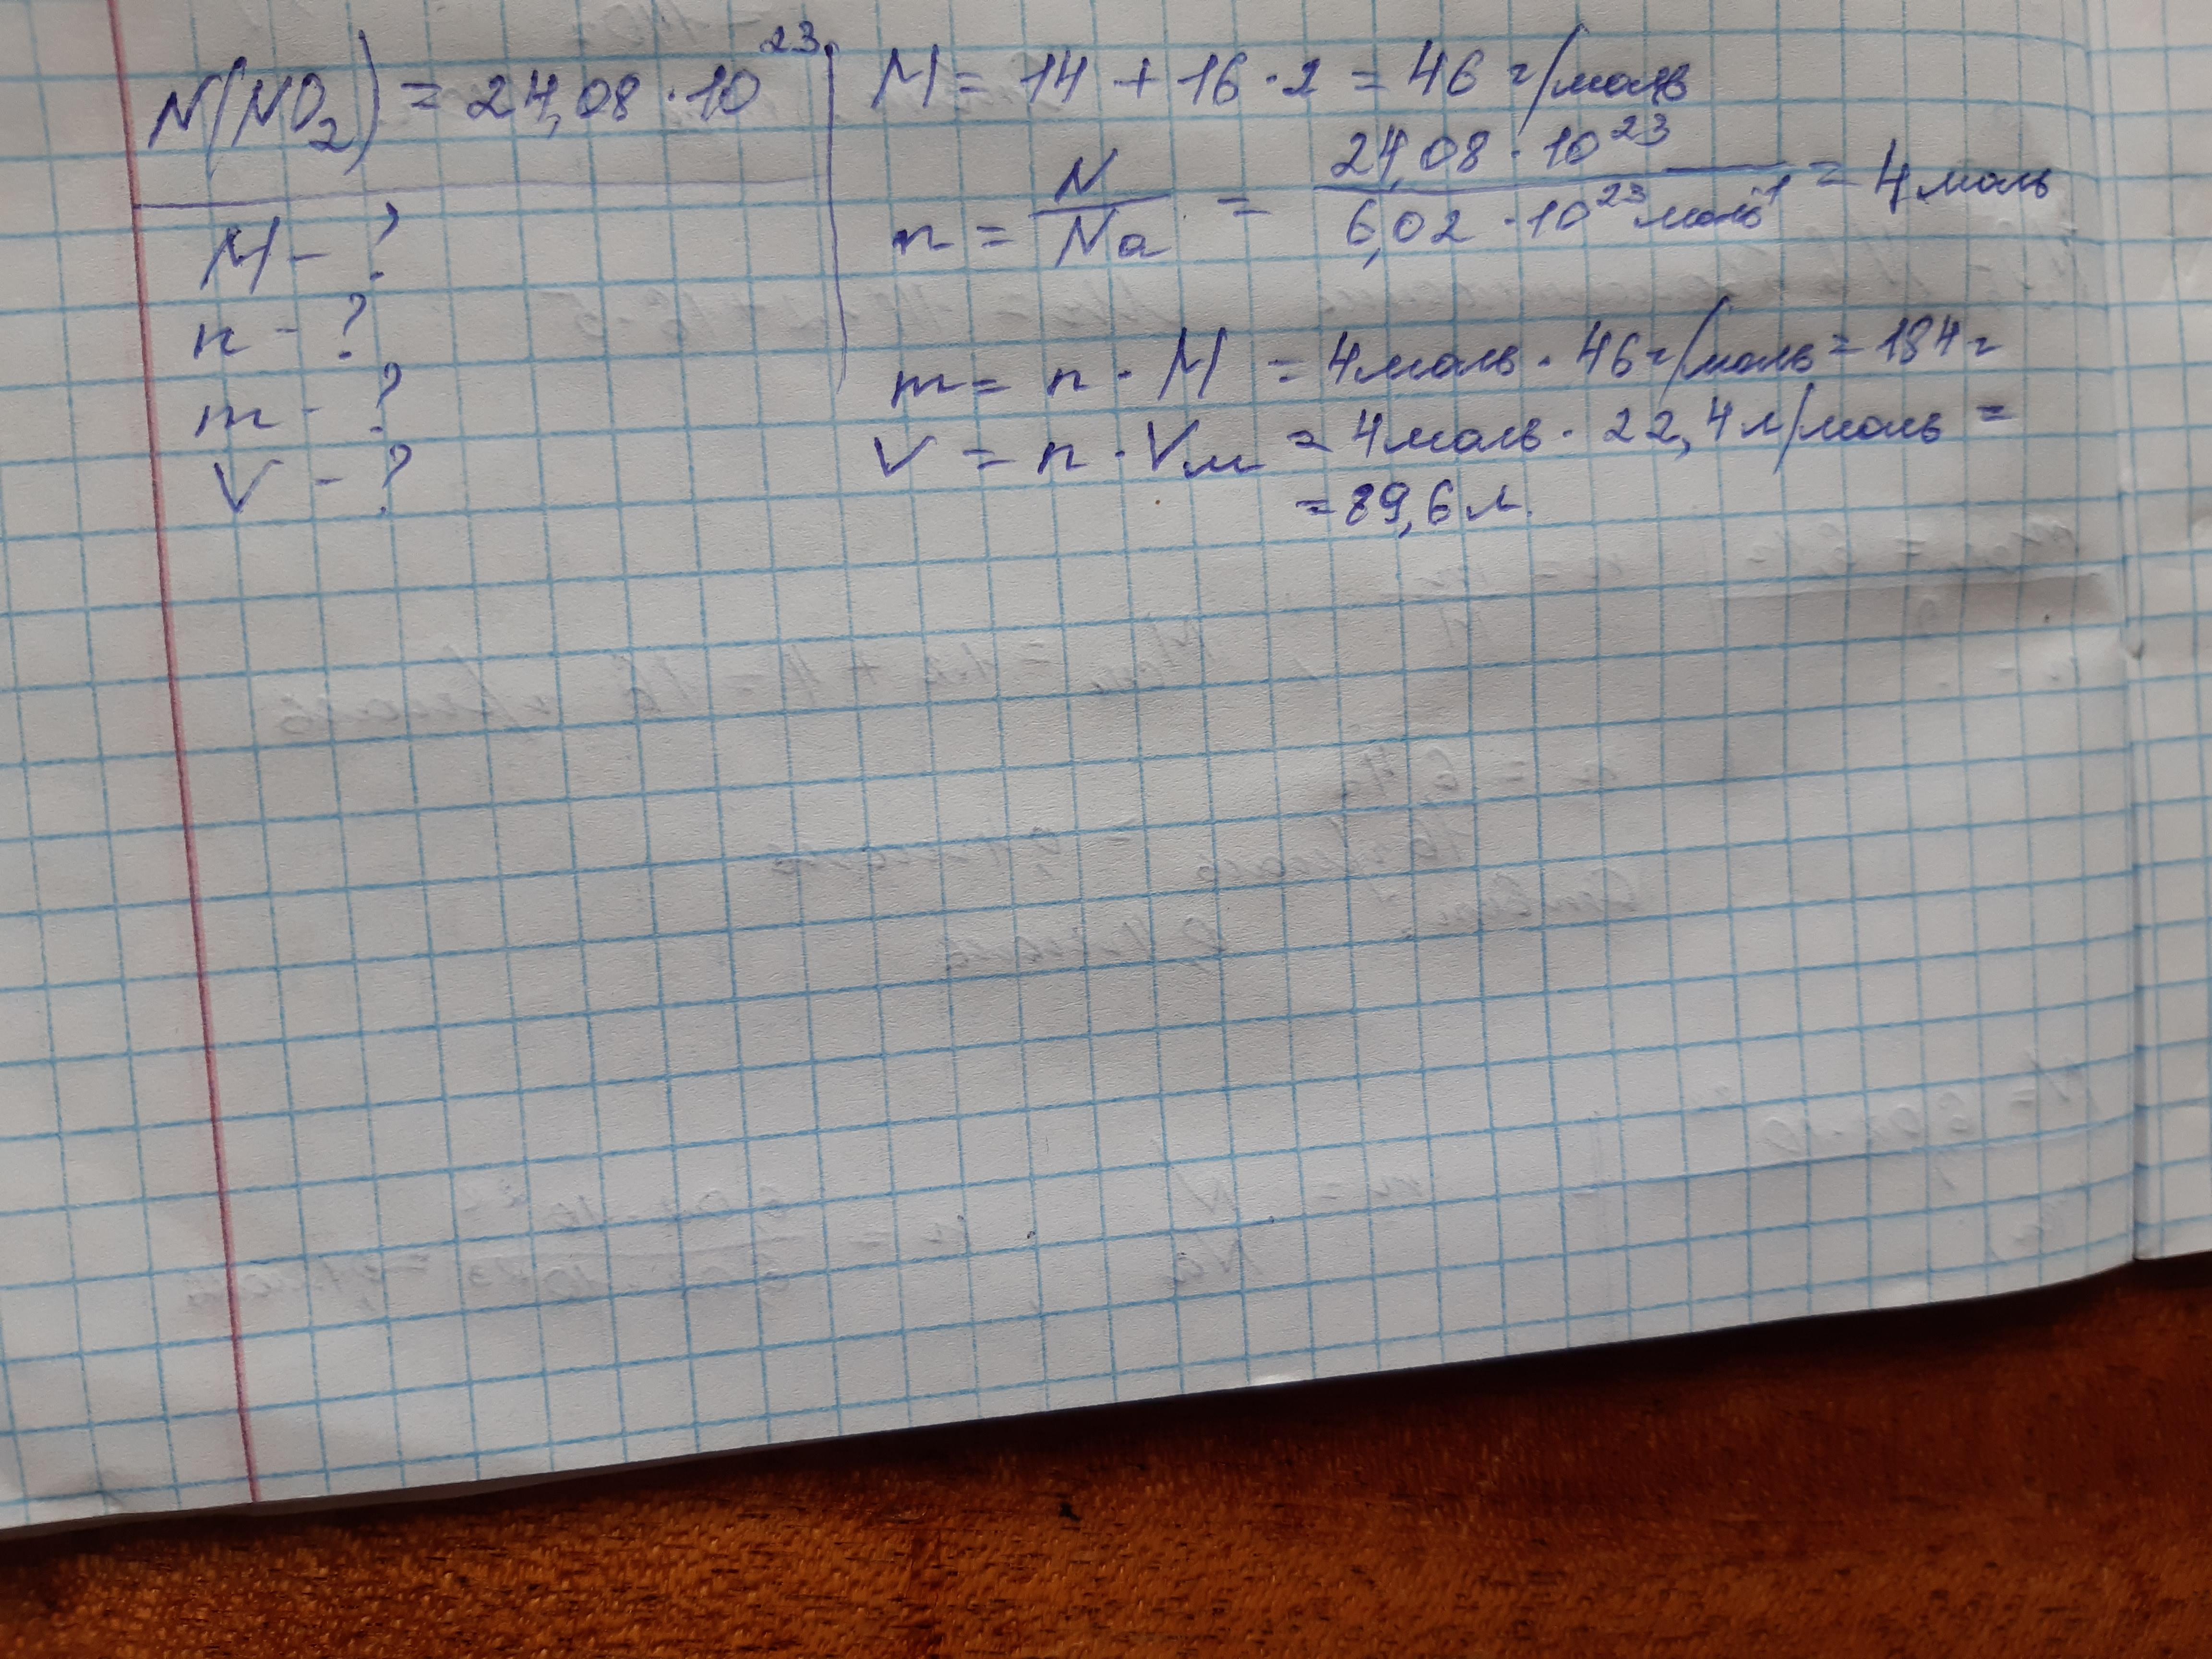 N(NO₂) = 24,08 · 10²³
M - ?
n - ?
m - ?
V - ?
M = 14 + 16 · 2 = 46 г/моль
n = N/Na = 24,08 · 10²³ / 6,02 · 10²³ моль⁻¹ = 4 моль
m = n · M = 4 моль · 46 г/моль = 184 г
V = n · Vм = 4 моль · 22,4 л/моль =
= 89,6 л.